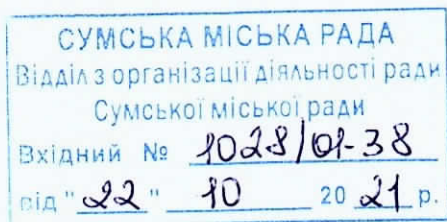 СУМСЬКА МІСЬКА РАДА
Відділ з організації діяльності ради
Сумської міської ради
Вхідний № 1028/01-38
від "22" 10 20 21 р.